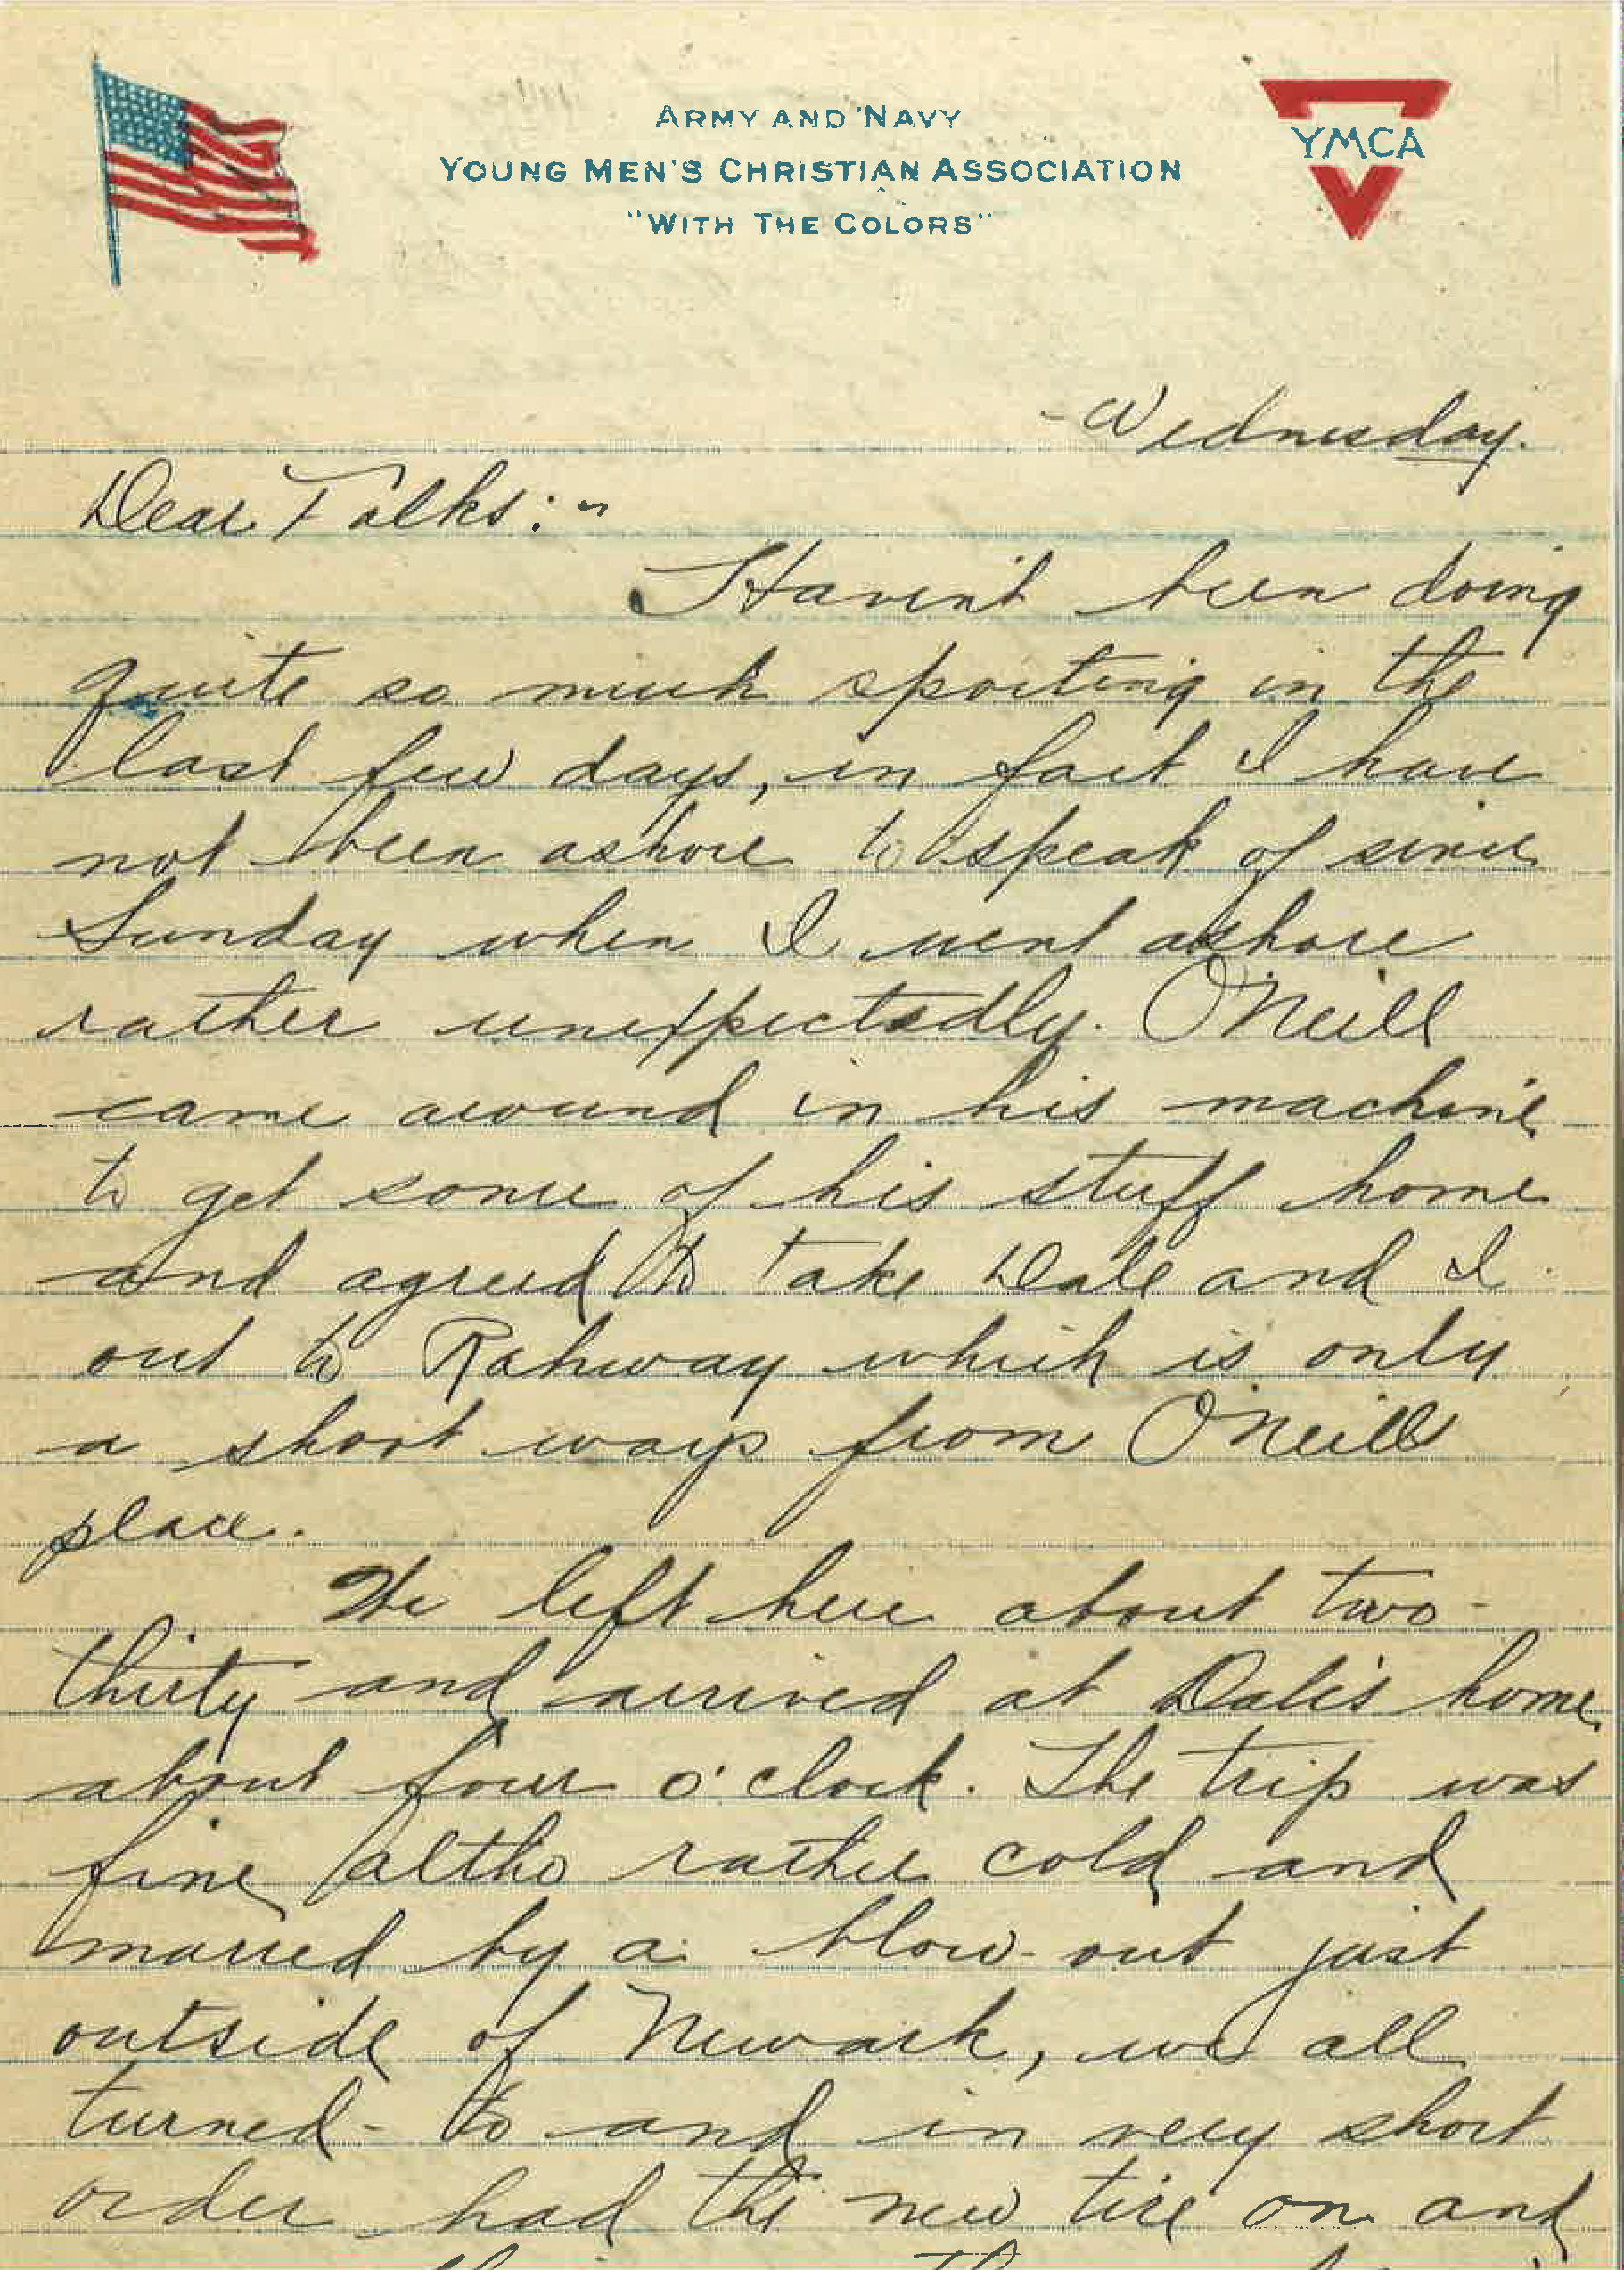 ARMY AND NAVY
YOUNG MEN'S CHRISTIAN ASSOCIATION
"WITH THE COLORS"
YMCA
Wednesday.
Dear Folks:-
Haven't been doing
quite so much sporting in the
last few days, in fact I have
not been ashore to speak of since
Sunday when I went ashore
rather unexpectedly. O'Neill
came around in his machine
to get some of his stuff home
and agreed to take Dale and I
out to Rahway which is only
a short ways from O'Neills
place.
We left here about two-
thirty and arrived at Dale's home
about four o'clock. The trip was
fine altho rather cold and
marred by a blow-out just
outside of Newark, we all
turned-to and in very short
order had the new tire on and